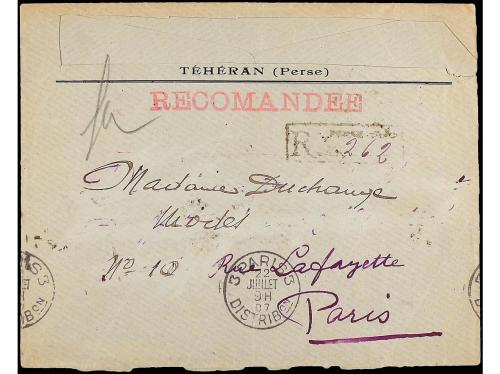 TÉHÉRAN (Perse)
RECOMANDEE
R 262
Madame Duchange
Modes
No 10 Rue Lafayette
Paris
3 PARIS 3
22
JUILLET
9H
07
DISTRIBON